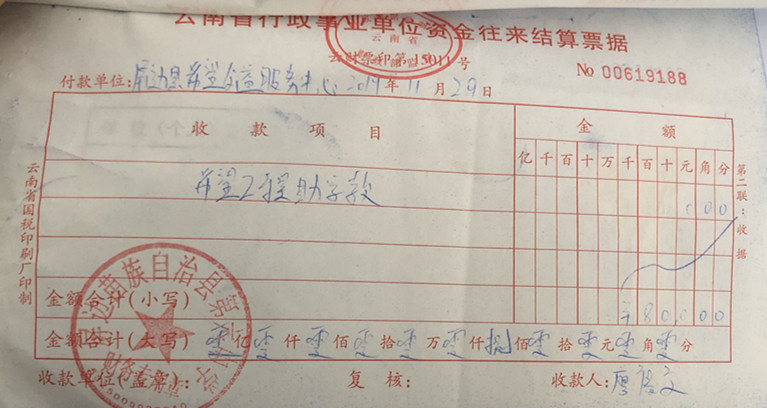 云南省行政事业单位资金往来结算票据
云南省
云财票印第15011号
No 00619188
付款单位:屏边县希望公益服务中心 2019年11月29日
收款项目 金额
亿千百十万千百十元角分
希望工程助学款 000
金额合计(小写) ¥80000
金额合计(大写) 亿零仟零佰零拾零万零仟捌佰零拾零元零角零分
收款单位(盖章): 复核: 收款人:
云南省国税印刷厂印制
第二联:收据
边苗族自治县第
财务专用章